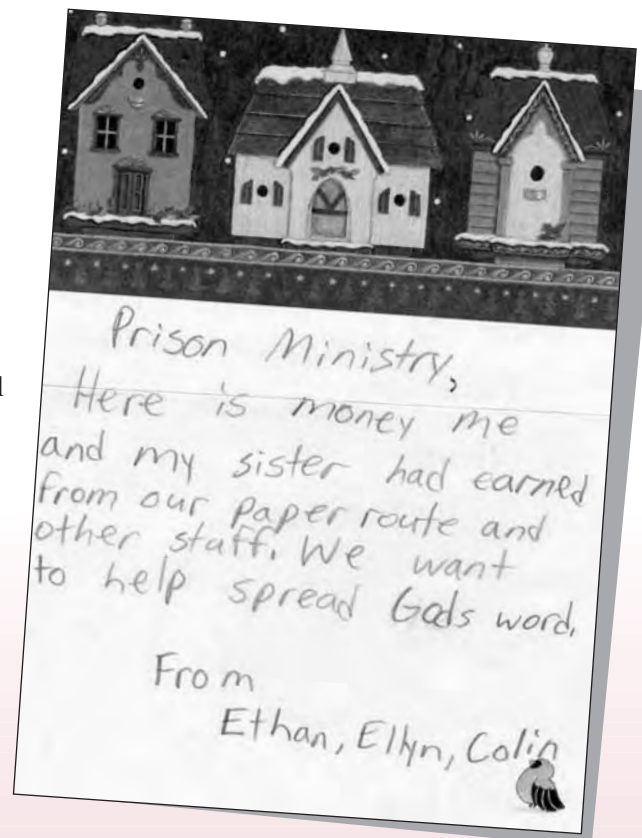 Prison Ministry,
Here is money me
and my sister had earned
from our paper route and
other staff. We want
to help spread Gods word.
From
Ethan, Ellyn, Colin